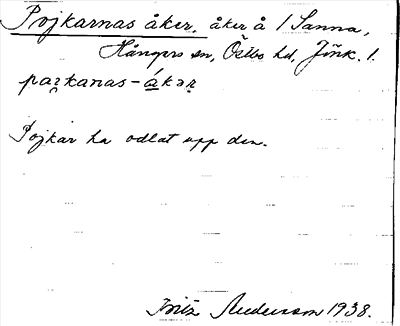 Pojkarnas åker, åker å 1 Sanna,
Hångers sn, Östbo hd, Jönk. l.
paɪ̯kanas-ákər̥
Pojkar ha odlat upp den.
Fritz Andersson 1938.